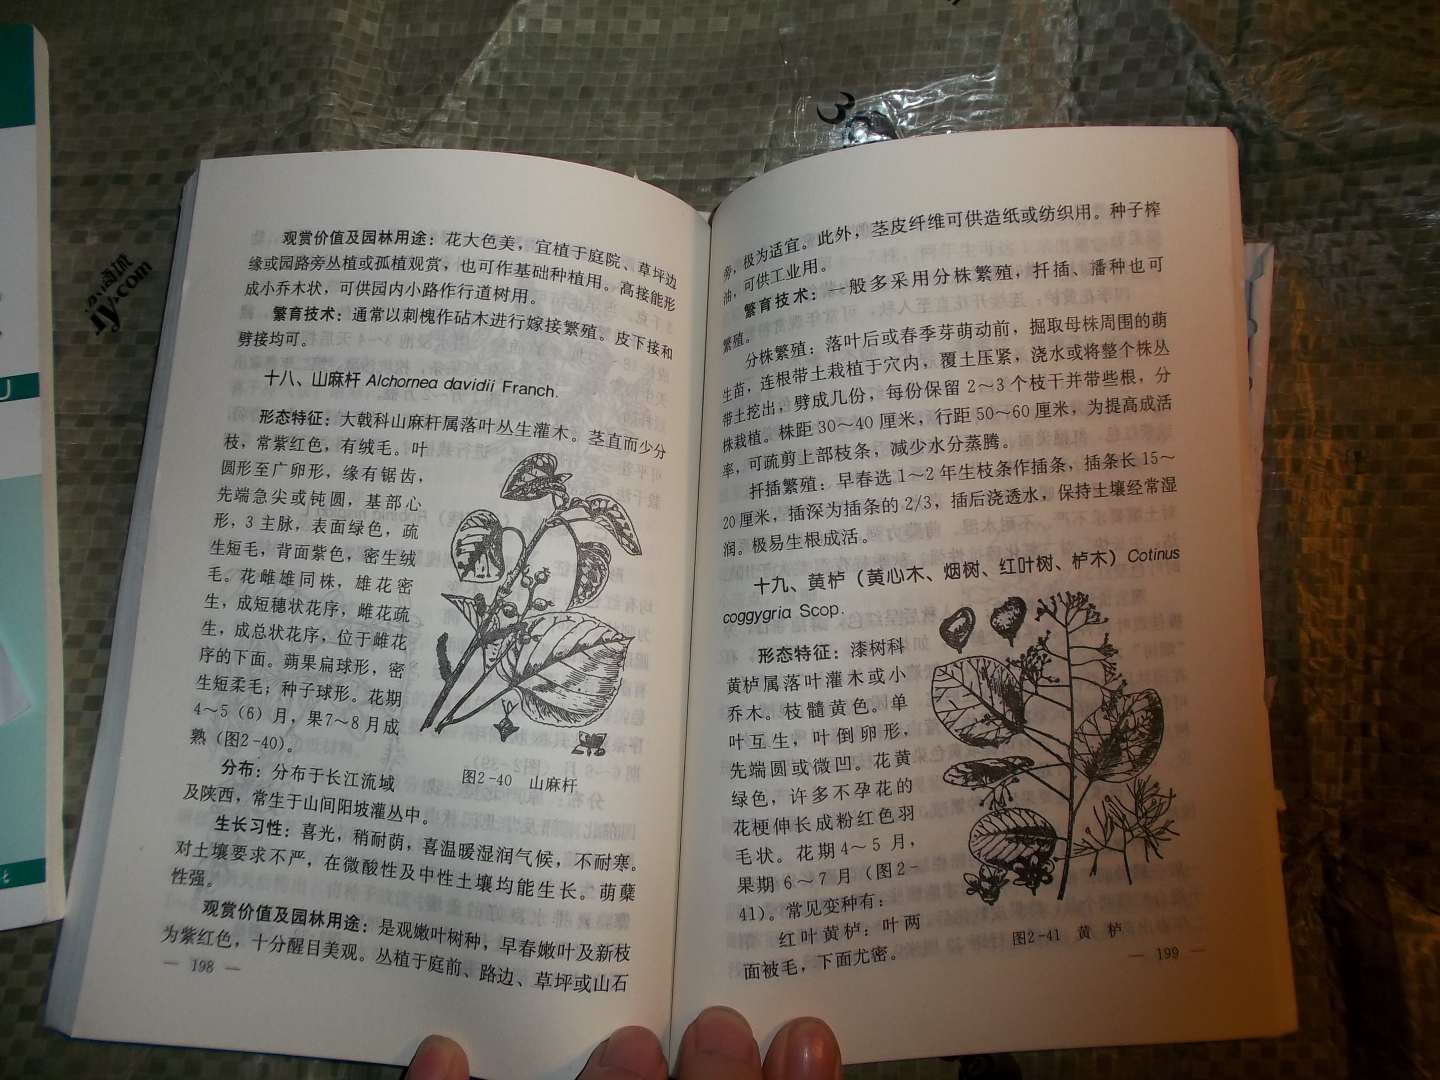 观赏价值及园林用途：花大色美，宜植于庭院、草坪边
缘或园路旁丛植或孤植观赏，也可作基础种植用。高接能形
成小乔木状，可供园内小路作行道树用。
繁育技术：通常以刺槐作砧木进行嫁接繁殖。皮下接和
劈接均可。
十八、山麻杆 Alchornea davidii Franch.
形态特征：大戟科山麻杆属落叶丛生灌木。茎直而少分
枝，常紫红色，有绒毛。叶
圆形至广卵形，缘有锯齿，
先端急尖或钝圆，基部心
形，3 主脉，表面绿色，疏
生短毛，背面紫色，密生绒
毛。花雌雄同株，雄花密
生，成短穗状花序，雌花疏
生，成总状花序，位于雌花
序的下面。蒴果扁球形，密
生短柔毛；种子球形。花期
4～5（6）月，果7～8月成
熟（图2-40）。
图2-40 山麻杆
分布：分布于长江流域
及陕西，常生于山间阳坡灌丛中。
生长习性：喜光，稍耐荫，喜温暖湿润气候，不耐寒。
对土壤要求不严，在微酸性及中性土壤均能生长。萌蘖
性强。
观赏价值及园林用途：是观嫩叶树种，早春嫩叶及新枝
为紫红色，十分醒目美观。丛植于庭前、路边、草坪或山石
— 198 —
旁，极为适宜。此外，茎皮纤维可供造纸或纺织用。种子榨
油，可供工业用。
繁育技术：一般多采用分株繁殖，扦插、播种也可
繁殖。
分株繁殖：落叶后或春季芽萌动前，掘取母株周围的萌
生苗，连根带土栽植于穴内，覆土压紧，浇水或将整个株丛
带土挖出，劈成几份，每份保留 2～3 个枝干并带些根，分
株栽植。株距 30～40 厘米，行距 50～60 厘米，为提高成活
率，可疏剪上部枝条，减少水分蒸腾。
扦插繁殖：早春选 1～2 年生枝条作插条，插条长 15～
20 厘米，插深为插条的 2/3，插后浇透水，保持土壤经常湿
润。极易生根成活。
十九、黄栌（黄心木、烟树、红叶树、栌木）Cotinus
coggygria Scop.
形态特征：漆树科
黄栌属落叶灌木或小
乔木。枝髓黄色。单
叶互生，叶倒卵形，
先端圆或微凹。花黄
绿色，许多不孕花的
花梗伸长成粉红色羽
毛状。花期4～5月，
果期 6～7 月（图2-
41）。常见变种有：
红叶黄栌：叶两
面被毛，下面尤密。
图2-41 黄 栌
— 199 —